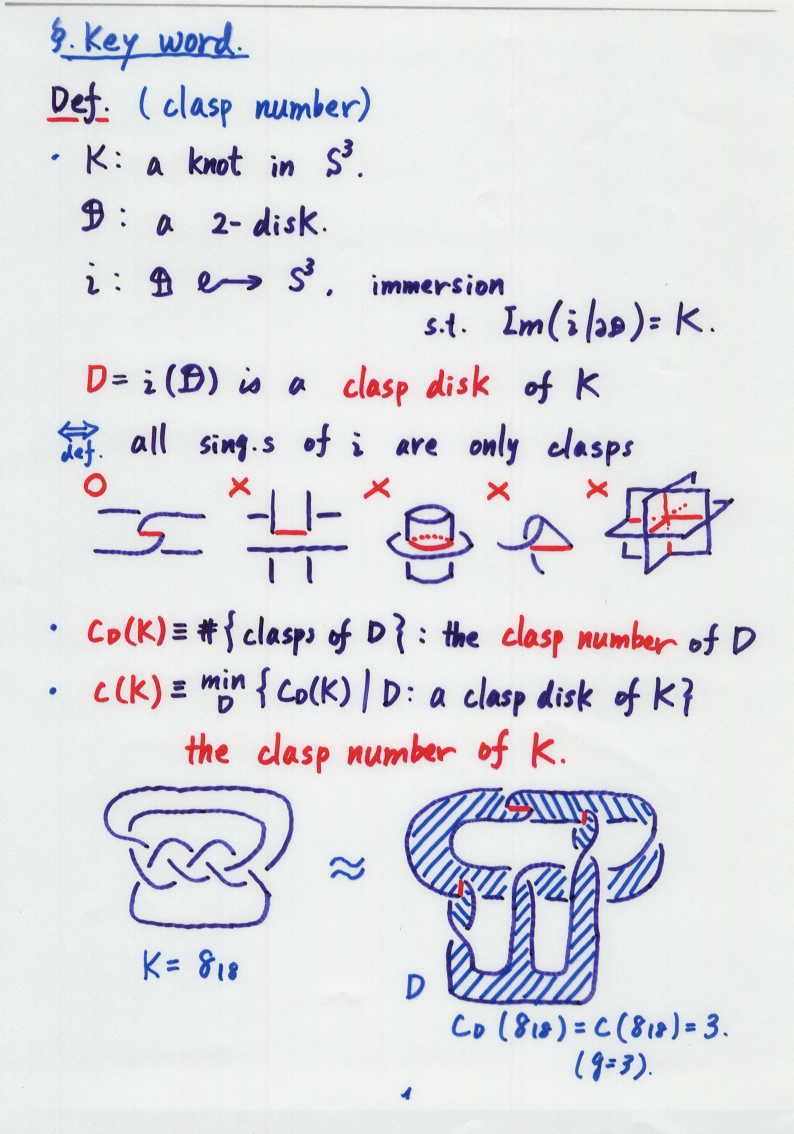 §. Key word.
Def. (clasp number)
・ K: a knot in S³.
𝔻: a 2-disk.
i: 𝔻 ↬ S³. immersion
s.t. Im(i|∂𝔻)= K.
D= i(𝔻) is a clasp disk of K
⇔ def. all sing.s of i are only clasps
○ × × × ×
・ C_D(K) ≡ #{clasps of D}: the clasp number of D
・ c(K) ≡ min_D {C_D(K) | D: a clasp disk of K}
the clasp number of K.
≈
K= 8₁₈
D
C_D(8₁₈)=C(8₁₈)=3.
(g=3).
1